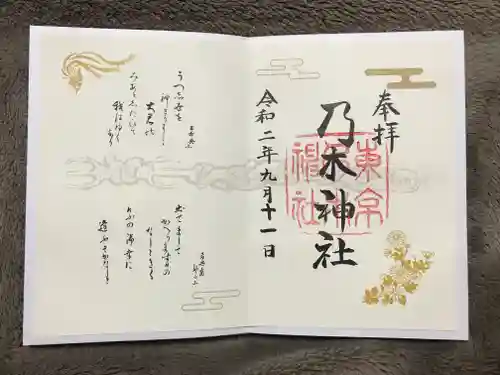 奉拝
東京
乃木神社
令和二年九月十一日
臣希典上
うつし世を
神さりましゝ
大君の
みあとしたひて
我はゆく
なり
希典妻
静子上
出てまして
かへります日の
なしときく
けふの御幸に
逢ふそかなしき